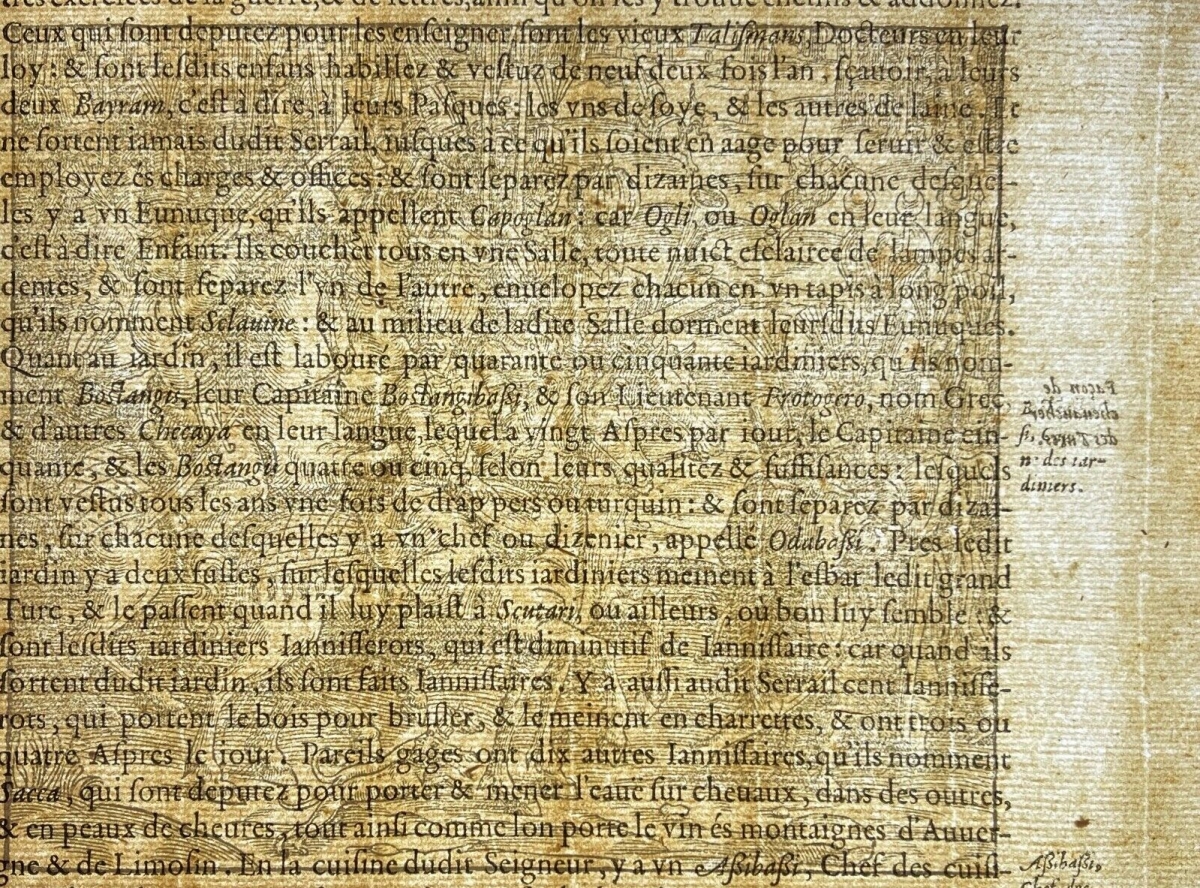 tres exercices de la guerre, & de lettres, ainsi qu'on les y trouue enclins & addonnez.
Ceux qui ſont deputez pour les enſeigner, ſont les vieux Taliſmans, Docteurs en leur
loy : & ſont leſdits enfans habillez & veſtuz de neuf deux fois l'an , ſçauoir, à leurs
deux Bayram, c'eſt à dire, à leurs Paſques : les vns de ſoye, & les autres de laine. Et
ne ſortent iamais dudit Serrail, iuſques à ce qu'ils ſoient en aage pour ſeruir & eſtre
employez és charges & offices : & ſont ſeparez par dizaines, ſur chacune deſquel-
les y a vn Eunuque, qu'ils appellent Capoglan : car Ogli, ou Oglan en leur langue,
c'eſt à dire Enfant. Ils couchēt tous en vne Salle, toute nuict eſclairee de lampes ar-
dentes, & ſont ſeparez l'vn de l'autre, enuelopez chacun en vn tapis à long poil,
qu'ils nomment Sclauine : & au milieu de ladite Salle dorment leurſdits Eunuques.
Quant au iardin, il eſt labouré par quarante ou cinquante iardiniers, qu'ils nom-
ment Boſtangis, leur Capitaine Boſtangibaſſi, & ſon Lieutenant Protogero, nom Grec,
& d'autres Checaya en leur langue, lequel a vingt Aſpres par iour, le Capitaine cin-
quante, & les Boſtangis quatre ou cinq, ſelon leurs qualitez & ſuffiſances : leſquels
ſont veſtus tous les ans vne fois de drap pers ou turquin : & ſont ſeparez par dizai-
nes, ſur chacune deſquelles y a vn chef ou dizenier, appellé Odabaſſi. Pres ledit
iardin y a deux fuſtes, ſur leſquelles leſdits iardiniers meinent à l'eſbat ledit grand
Turc, & le paſſent quand il luy plaiſt à Scutari, ou ailleurs, où bon luy ſemble : &
ſont leſdits iardiniers Ianniſſerots, qui eſt diminutif de Ianniſſaire : car quand ils
ſortent dudit iardin, ils ſont faits Ianniſſaires. Y a auſſi audit Serrail cent Ianniſſe-
rots, qui portent le bois pour bruſler, & le meinent en charrettes, & ont trois ou
quatre Aſpres le iour. Pareils gages ont dix autres Ianniſſaires, qu'ils nomment
Sacca, qui ſont deputez pour porter & mener l'eauë ſur cheuaux, dans des outres,
& en peaux de cheures, tout ainſi comme lon porte le vin és montaignes d'Auuer-
gne & de Limoſin. En la cuiſine dudit Seigneur, y a vn Aſſibaſſi, Chef des cuiſi-
n des iar-
diniers.
Aſſibaſſi,
chef des